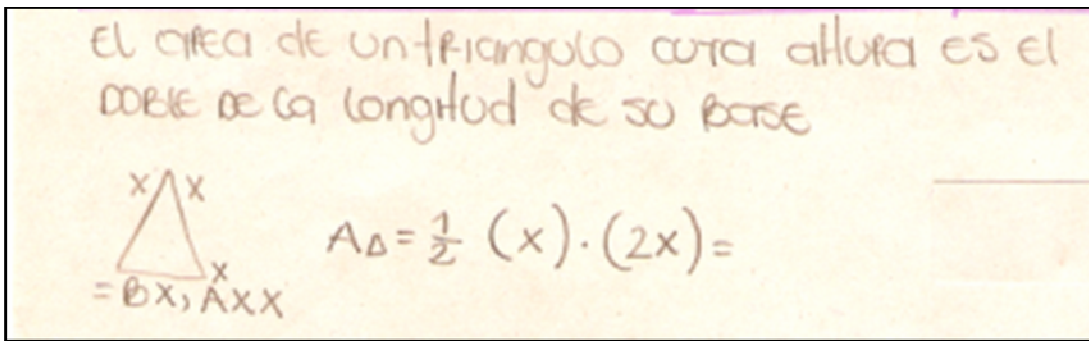 El area de un triangulo cuya altura es el
DOBLE DE la longitud de su BASE
x x
x
A△ = 1/2 (x)·(2x)=
= Bx, Axx